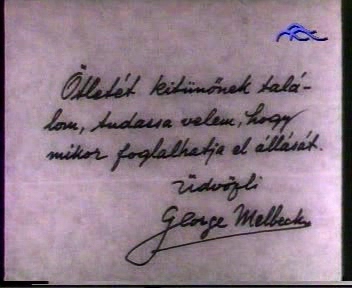 Ötletét kitünőnek talá-
lom, tudassa velem, hogy
mikor foglalhatja el állását.
Üdvözli
George Melbeck